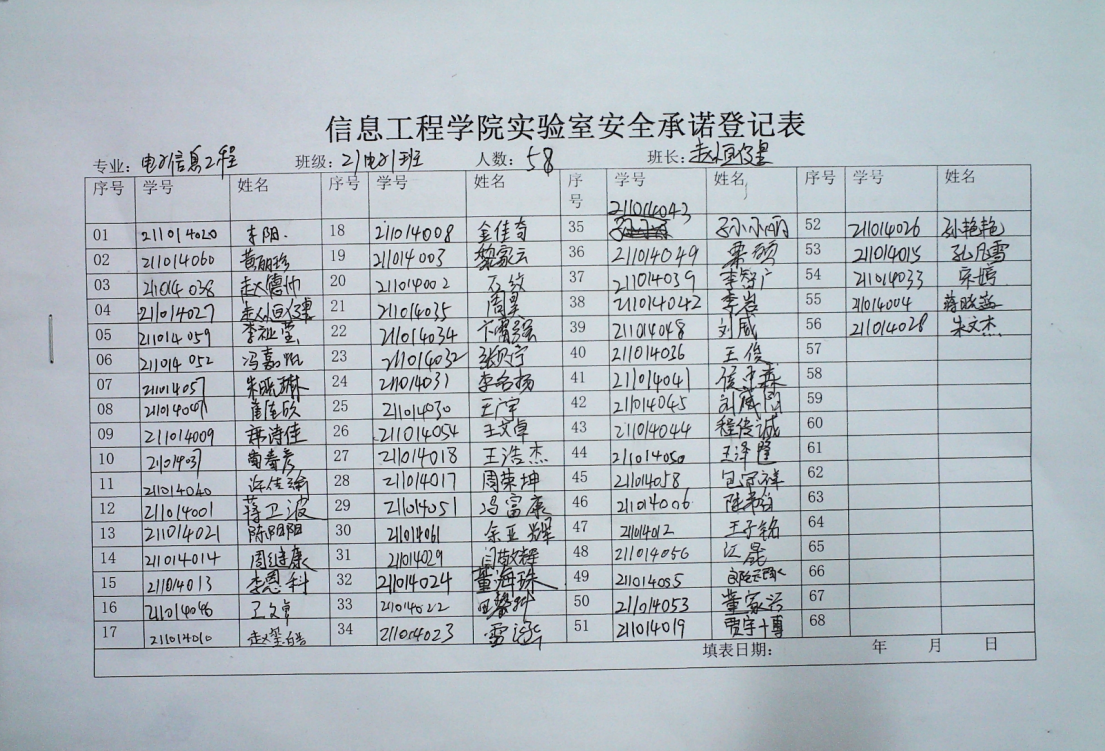 信息工程学院实验室安全承诺登记表
专业：电子信息工程 班级：21电子1班 人数：58 班长：赵恒健
序号 学号 姓名 序号 学号 姓名 序号 学号 姓名 序号 学号 姓名
01 211014020 李阳 18 211014008 金佳奇 35 211014043 孙小雨 52 211014026 孙艳艳
02 211014060 黄丽珍 19 211014003 黎家云 36 211014049 栗硕 53 211014015 孔凡雪
03 211014038 赵德帅 20 211014002 石纹 37 211014039 李智广 54 211014033 宋婷
04 211014027 21 211014035 周昊 38 211014042 李岩 55 21014004 蒋晓燕
05 211014059 22 211014034 卞富强 39 211014048 刘威 56 211014028 朱文杰
06 211014052 冯嘉 23 211014032 40 211014036 王俊 57
07 211014057 朱晓琳 24 211014031 李名扬 41 211014041 58
08 25 211014030 王宇 42 211014045 刘 59
09 211014009 郭诗佳 26 211014054 王文卓 43 211014044 程俊诚 60
10 27 211014018 王浩杰 44 211014050 王泽 61
11 211014040 28 211014017 周荣坤 45 211014058 62
12 211014001 蒋卫波 29 211014051 冯富康 46 211014006 63
13 211014021 陈阳阳 30 21014061 余亚辉 47 21014012 王子铭 64
14 211014014 周健康 31 211014029 闫敬辉 48 211014056 江晟 65
15 211014013 李恩科 32 211014024 董海珠 49 211014055 66
16 211014046 33 211014022 50 211014053 董家浴 67
17 211014010 34 211014023 雷 51 211014019 贾宇博 68
填表日期： 年 月 日